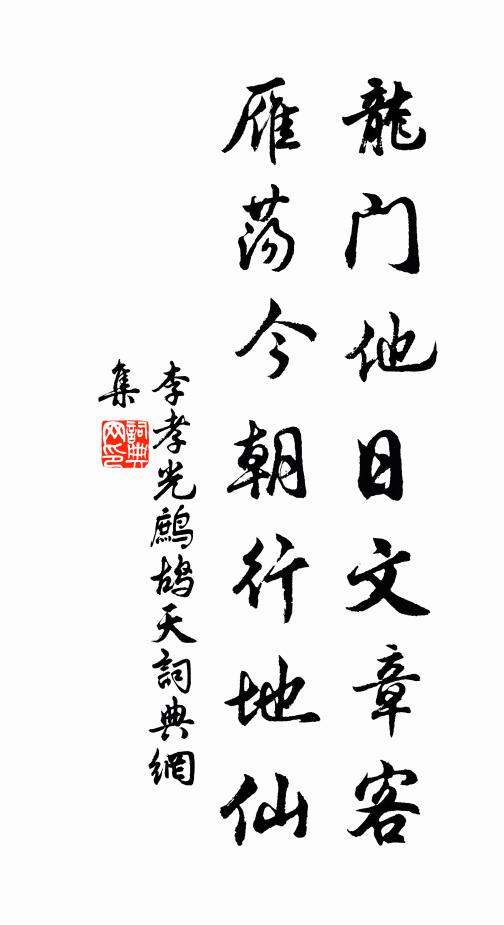 龍门他日文章客
雁荡今朝行地仙
李孝光鷓鴣天詞典網
集
詞典网印